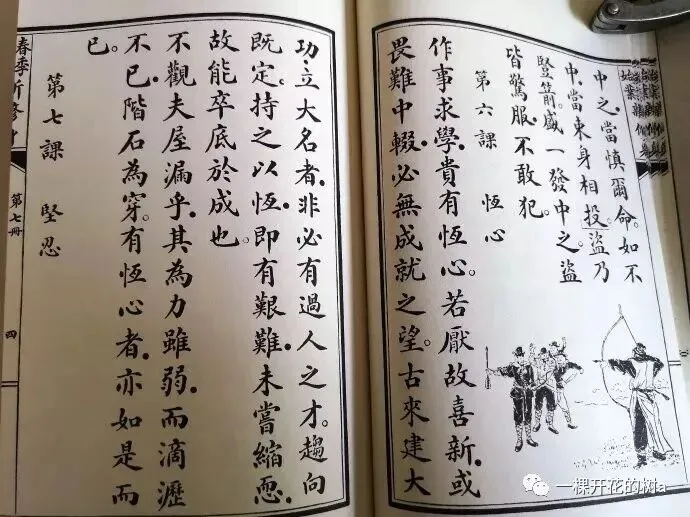 中之.當慎爾命.如不
中.當束身相投。盜乃
豎箭。盛一發中之。盜
皆驚服。不敢犯。
第六課 恆心
作事求學.貴有恆心。若厭故喜新.或
畏難中輟.必無成就之望。古來建大
功.立大名者.非必有過人之才。趨向
既定.持之以恆.即有艱難.未嘗縮恧.
故能卒底於成也。
不觀夫屋漏乎.其為力雖弱.而滴瀝
不已.階石為穿。有恆心者.亦如是而
已。
第七課 堅忍
春季
第七冊
四
一棵开花的树a